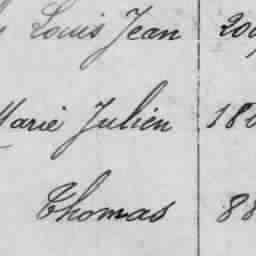 Louis Jean 209
Marie Julien 18
Thomas 88